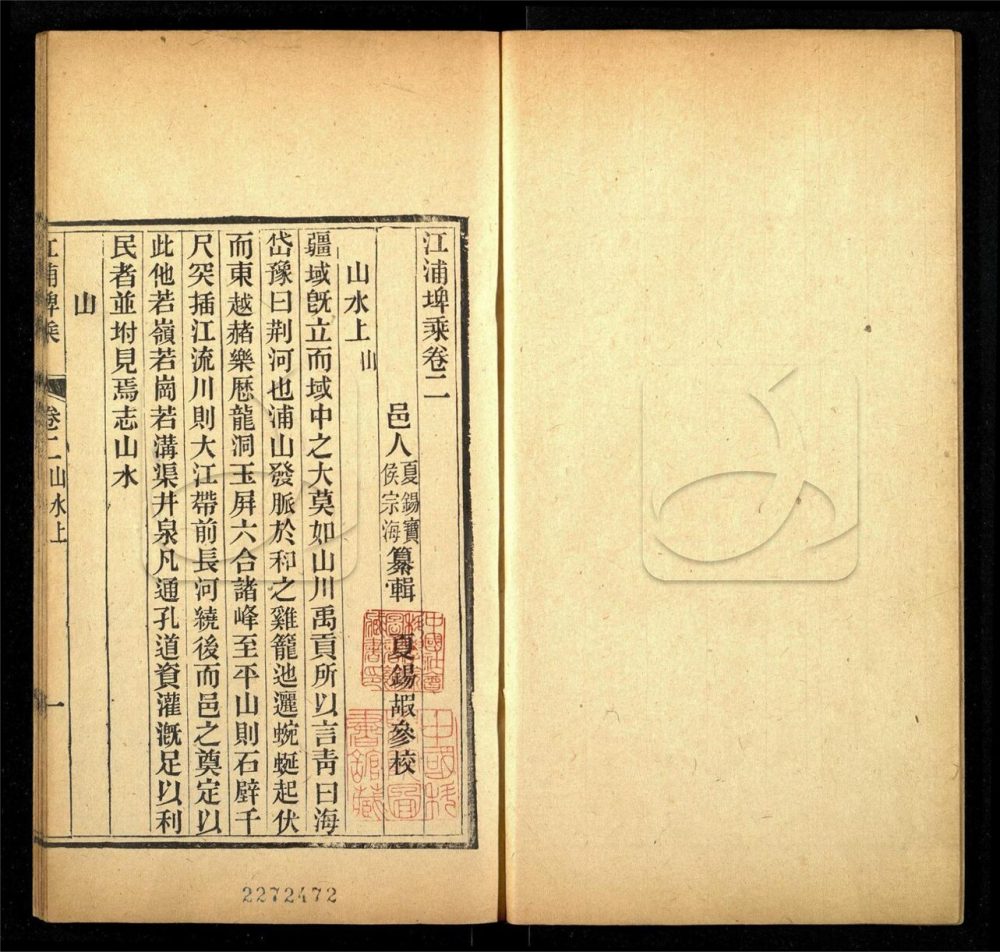 江浦埤乘卷二
邑人夏錫寶侯宗海纂輯　夏錫嘏參校
山水上山
疆域旣立而域中之大莫如山川禹貢所以言靑曰海
岱豫曰荆河也浦山發脈於和之雞籠迆邐蜿蜒起伏
而東越赭樂歷龍洞玉屏六合諸峰至平山則石壁千
尺突插江流川則大江帶前長河繞後而邑之奠定以
此他若嶺若崗若溝渠井泉凡通孔道資灌漑足以利
民者並坿見焉志山水
山
江浦埤乘
卷二山水上
一
2272472